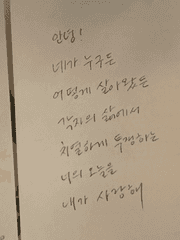 안녕!
네가 누구든
어떻게 살아왔든
각자의 삶에서
치열하게 투쟁하는
너의 오늘을
내가 사랑해